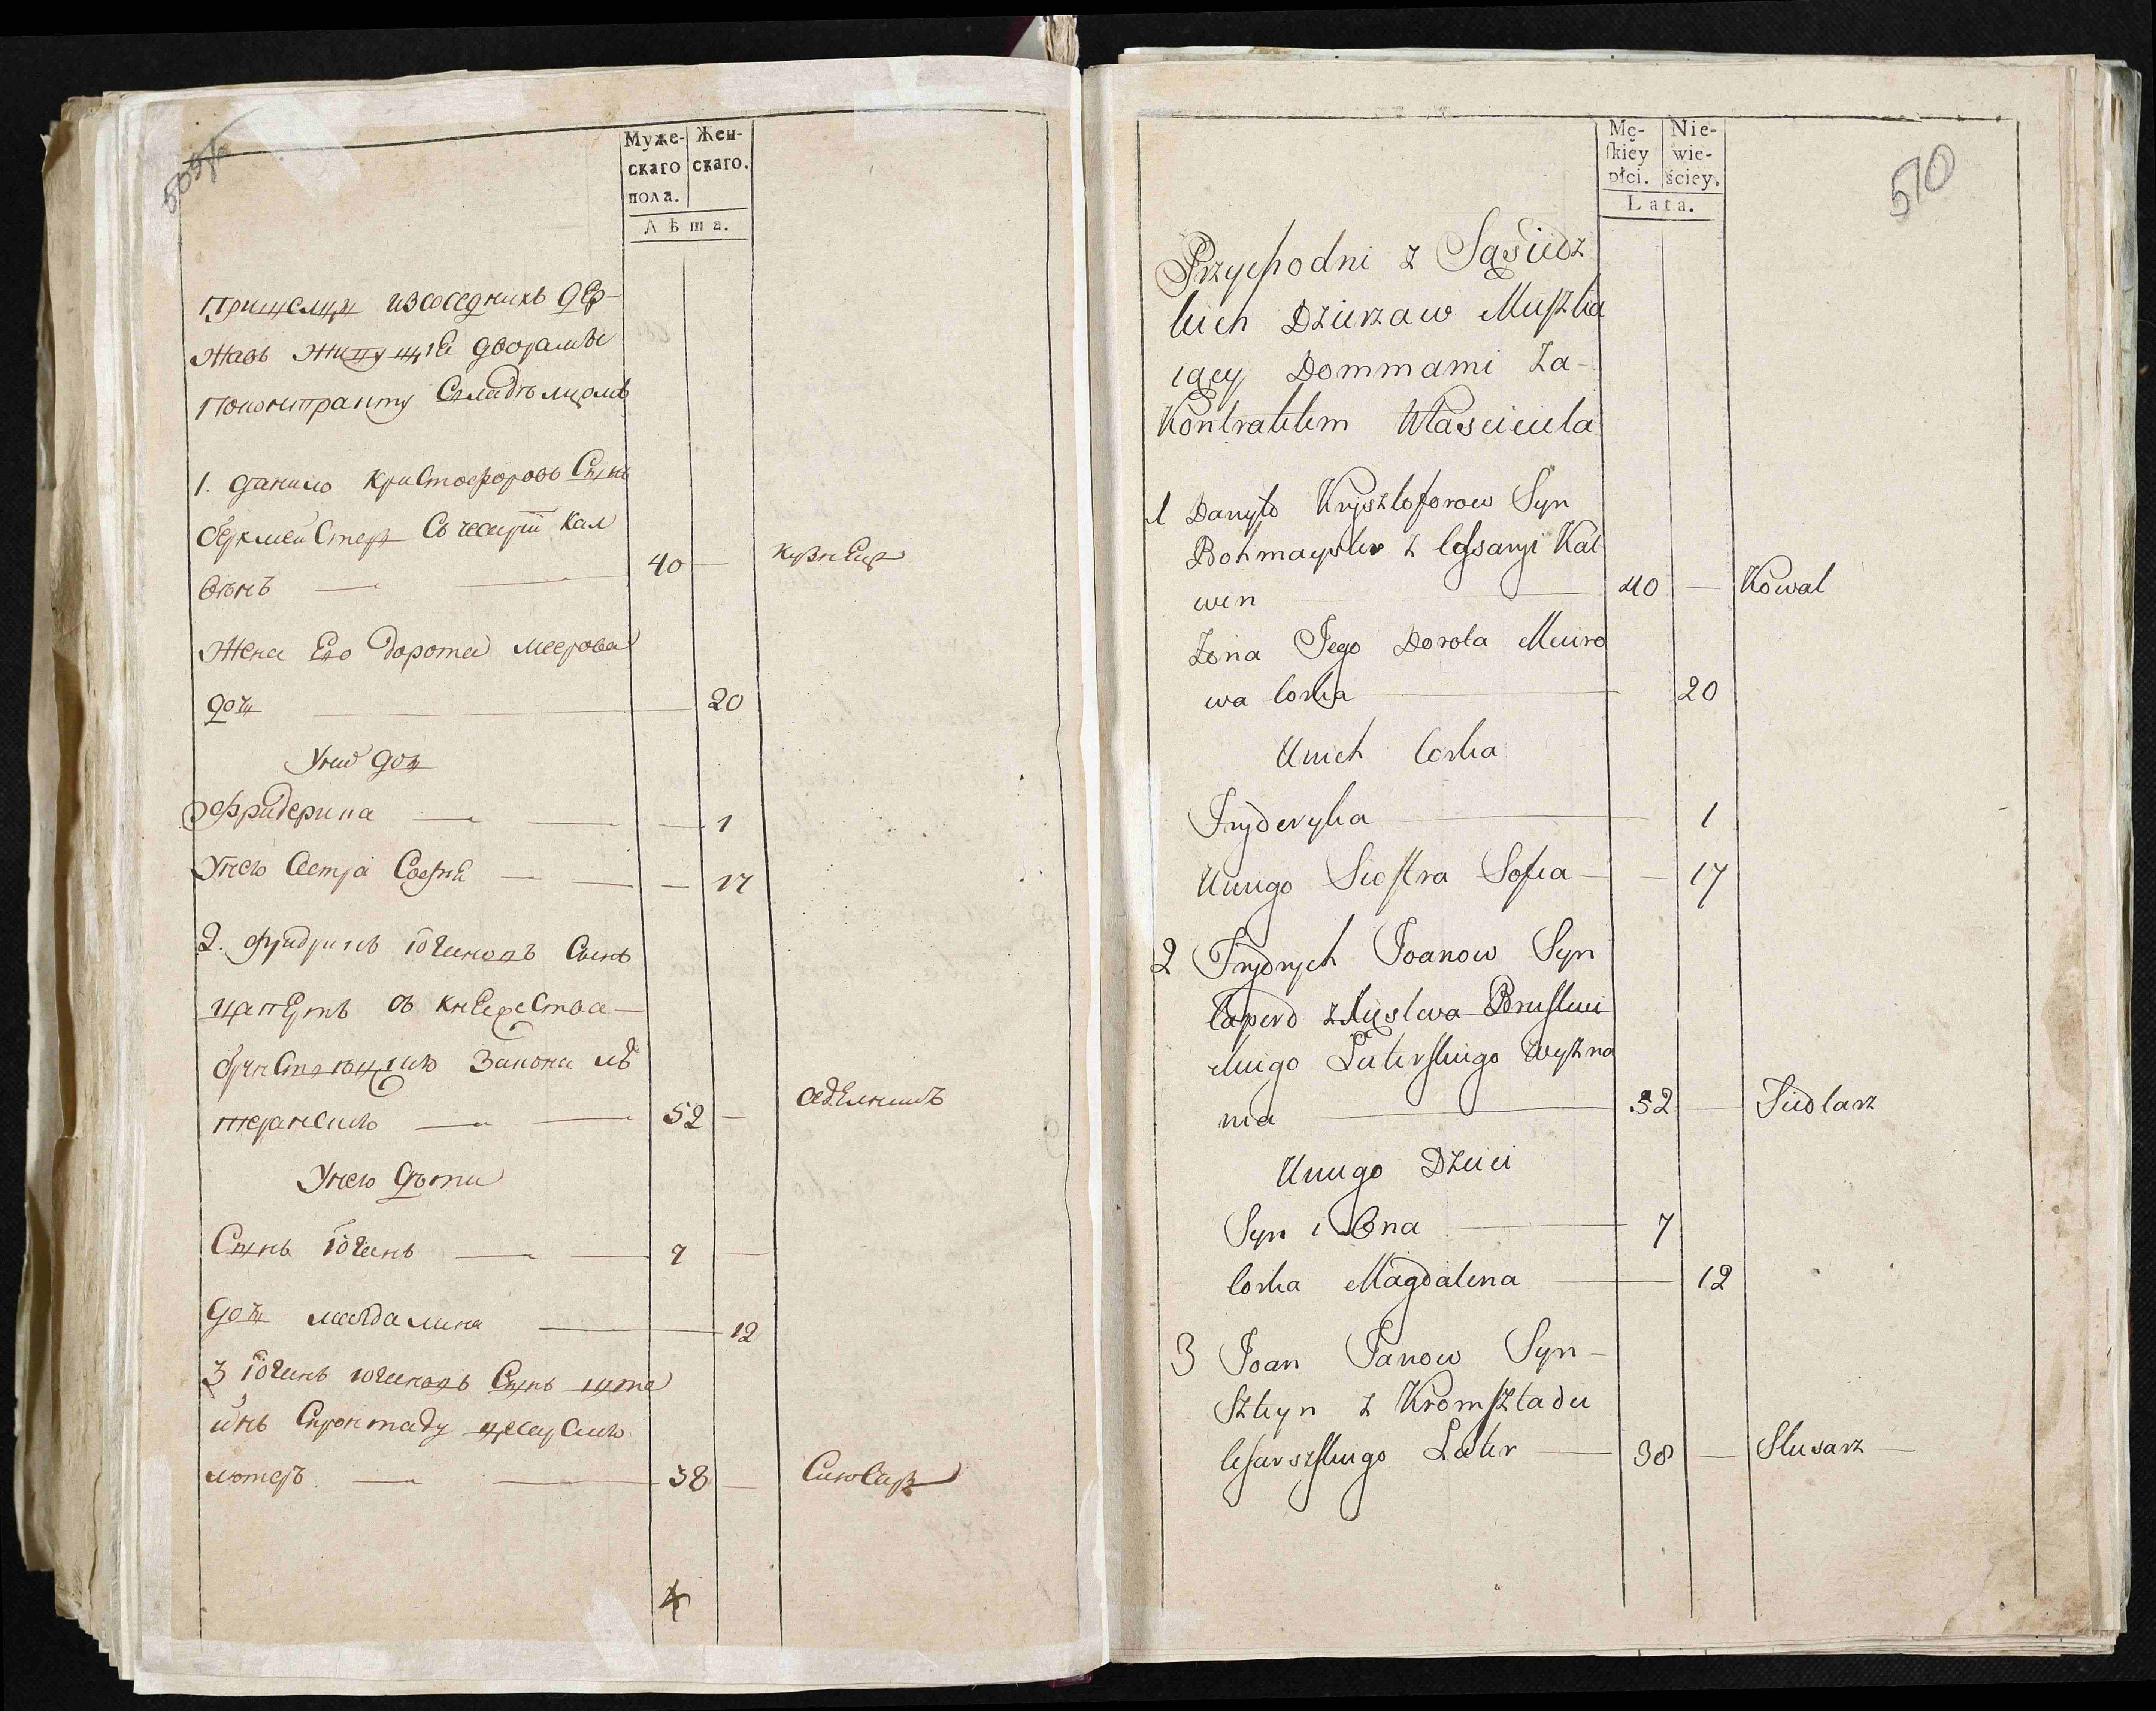 509об
Муже-
скаго
пола.
Жен-
скаго.
Лѣта.
Пришелцы изсоседнихъ Дер-
жавъ живущіе дворамы
Поконтракту Свладѣлцомъ
1. Данило Кристофоровъ Сынъ
Бокмейстер Съ чесаріи Кал
винъ — — 40 — кузнецъ
Жена Его Дорота Меерова
дочь — — 20
Уних дочь
Фридерика — — — 1
Унего Сестра Софія — — — 17
2. Фридрихъ Югановъ Сынъ
Цаперть съ Кнежества
Закона лю
терскаго — — 52 — седелникъ
Унего Дѣти
Сынъ Юганъ — — 7 —
дочь Магдалина — 12
3 Юганъ Югановъ СынъШте
инъ Скронштаду цесарскаго
лютеръ — — 38 — Слюсаръ
4
510
Mę-
skiey
płci.
Nie-
wie-
ściey.
Lata.
Przychodni z Sąsiedz
kich Dzierzaw Muszka
iący Dommami Za-
Kontraktem Własciciela
1 Danyło Krysztoforow Syn
Bohmayster z Cessaryi Kal
win — 40 — Kowal
Zona Jego Dorota Meiero
wa Corka — 20
Unich Corka
Fryderyka — 1
Uniego Siostra Sofia — — 17
2 Frydrych Joanow Syn
Caperd z Xięstwa Brusłwi
ckiego Luterskiego Wyzna
nia — 52 — Siedlarz
Uniego Dzieci
Syn — 7
Corka Magdalena — 12
3 Joan Janow Syn-
Sztyn z Kromsztadu
Cesarszskiego Luter — 38 — Slusarz —